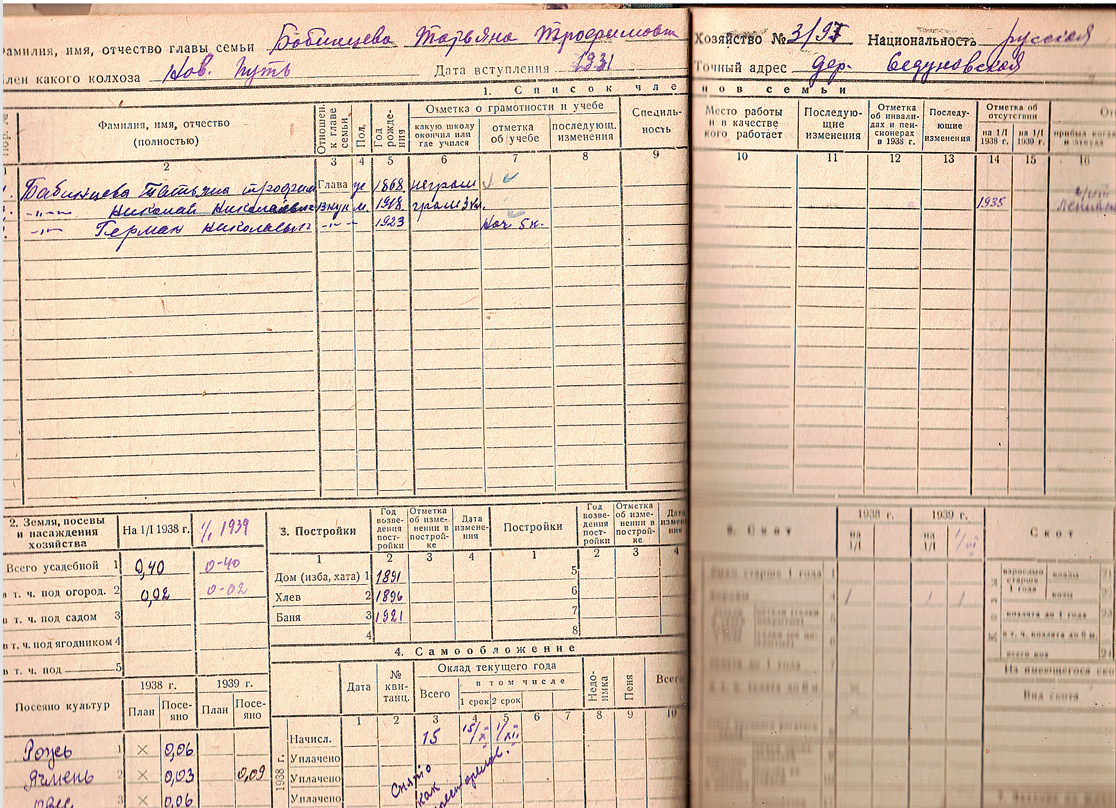 Фамилия, имя, отчество главы семьи Бабинцева Татьяна Трофимовн
Хозяйство № 3/97 Национальность русская
член какого колхоза Нов. путь Дата вступления 1931
Точный адрес дер. Седуновская
1. Список членов семьи
Фамилия, имя, отчество (полностью)
Отношен. к главе семьи
Пол.
Год рождения
Отметка о грамотности и учебе
какую школу окончил или где учился
отметка об учебе
последующ. изменения
Специльность
Место работы и в качестве кого работает
Последующие изменения
Отметка об инвалидах и пенсионерах в 1938 г.
Последующие изменения
Отметка об отсутствии
на 1/I 1938 г.
на 1/I 1939 г.
прибыл когда и откуда
2 3 4 5 6 7 8 9 10 11 12 13 14 15 16
Бабинцева Татьяна трофим Глава ж 1868 неграм
-"- Николай Николаевич внук м. 1918 грам 3 кл. 1935
-"- Герман Николаевич -"- 1923 Нач. 5 к.
2. Земля, посевы и насаждения хозяйства
На 1/I 1938 г. 1/I 1939
Всего усадебной 1 0,40 0-40
в т. ч. под огород. 2 0,02 0-02
в т. ч. под садом 3
в т. ч. под ягодником 4
в т. ч. под 5
Посеяно культур
1938 г. 1939 г.
План Посеяно План Посеяно
Рожь 1 × 0,06
Ячмень 2 × 0,03 0,09
Овес 3 × 0,06
3. Постройки
Год возведения постройки
Отметка об изменении в постройке
Дата изменения
Постройки
Год возведения постройки
Отметка об изменении в постройке
Дата измене
1 2 3 4 1 2 3 4
Дом (изба, хата) 1 1891 5
Хлев 2 1896 6
Баня 3 1921 7
4 8
4. Самообложение
Дата
№ квитанц.
Оклад текущего года
Всего
в том числе
1 срок 2 срок
Недоимка
Пеня
Всего
1 2 3 4 5 6 7 8 9 10
1938 г.
Начисл. 15 15/X 1/XII
Уплачено
Уплачено
Уплачено
Снято
как
Скот
1938 г. 1939 г.
на 1/I на 1/I 1/VI
Скот
Козы
взрослые старше 1 года
козлы
козы
козлята до 1 года
в т. ч. козлята до 6 м
всего коз
На имеющегося ско
Вид скота